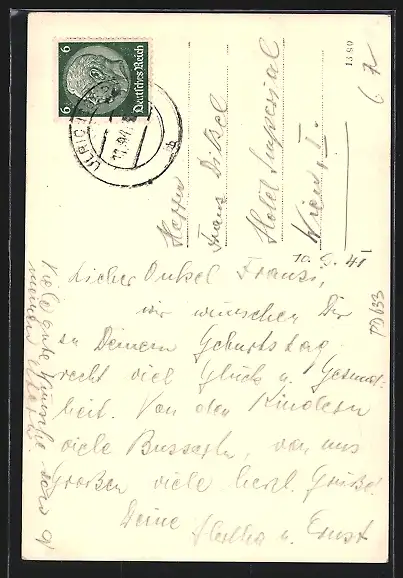 6
6
Deutsches Reich
ULRICH
11.9.41
b
1380
67
Herrn
Franz Dissel
Hotel Imperial
Wien, I.
10. 9. 41
PD633
Lieber Onkel Franzi,
wir wünschen Dir
zu Deinem Geburtstag
recht viel Glück u. Gesund-
heit. Von den Kindern
viele Busserln, von uns
Großen viele herzl. Grüße!
Deine Hertha u. Ernst
Viele gute Wünsche
meinen